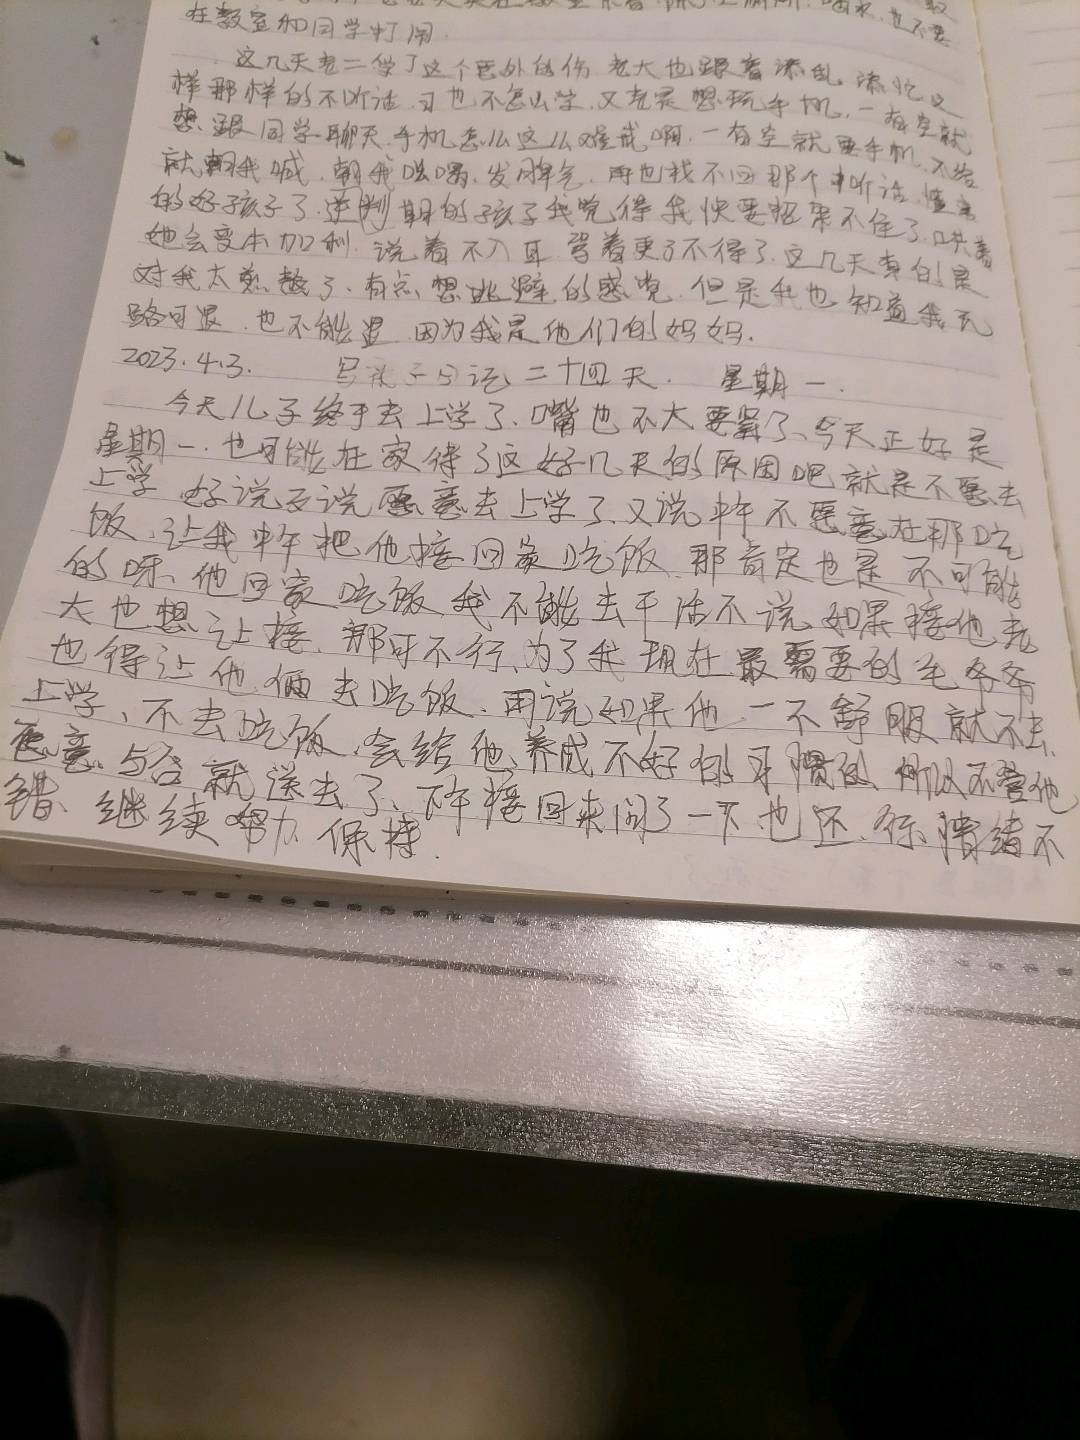 在教室和同学打闹.
这几天老二伤了这个意外的伤 老大也跟着添乱, 添忙这
样那样的不听话, 习也不怎么学, 又老是想玩手机, 一有空就
想跟同学聊天, 手机怎么这么难戒啊, 一有空就要手机, 不给
就朝我喊, 朝我嚷嚷, 发脾气, 再也找不回那个听话, 懂事
的好孩子了, 逆判期的孩子我觉得我快要招架不住了, 哄着
她会变本加利, 说着不入耳, 骂着更了不得了, 这几天真的是
对我太煎熬了, 有点想逃避的感觉, 但是我也知道我无
路可退, 也不能退 因为我是他们的妈妈.
2023.4.3. 写亲子日记二十四天. 星期一.
今天儿子终于去上学了, 嘴也不大要紧了, 今天正好是
星期一, 也可能在家待了这好几天的原因吧, 就是不愿去
上学 好说歹说愿意去上学了, 又说中午不愿意在那吃
饭, 让我中午把他接回家吃饭, 那肯定也是不可能
的呀, 他回家吃饭, 我不能去干活不说, 如果接他, 老
大也想让接, 那可不行, 为了我现在最需要的毛爷爷
也得让他俩去吃饭, 再说如果他一不舒服就不去
上学, 不去吃饭, 会给他养成不好的习惯的, 所以不管他
愿意与否就送去了, 下午接回来问了一下, 也还行, 情绪不
错, 继续努力, 保持.